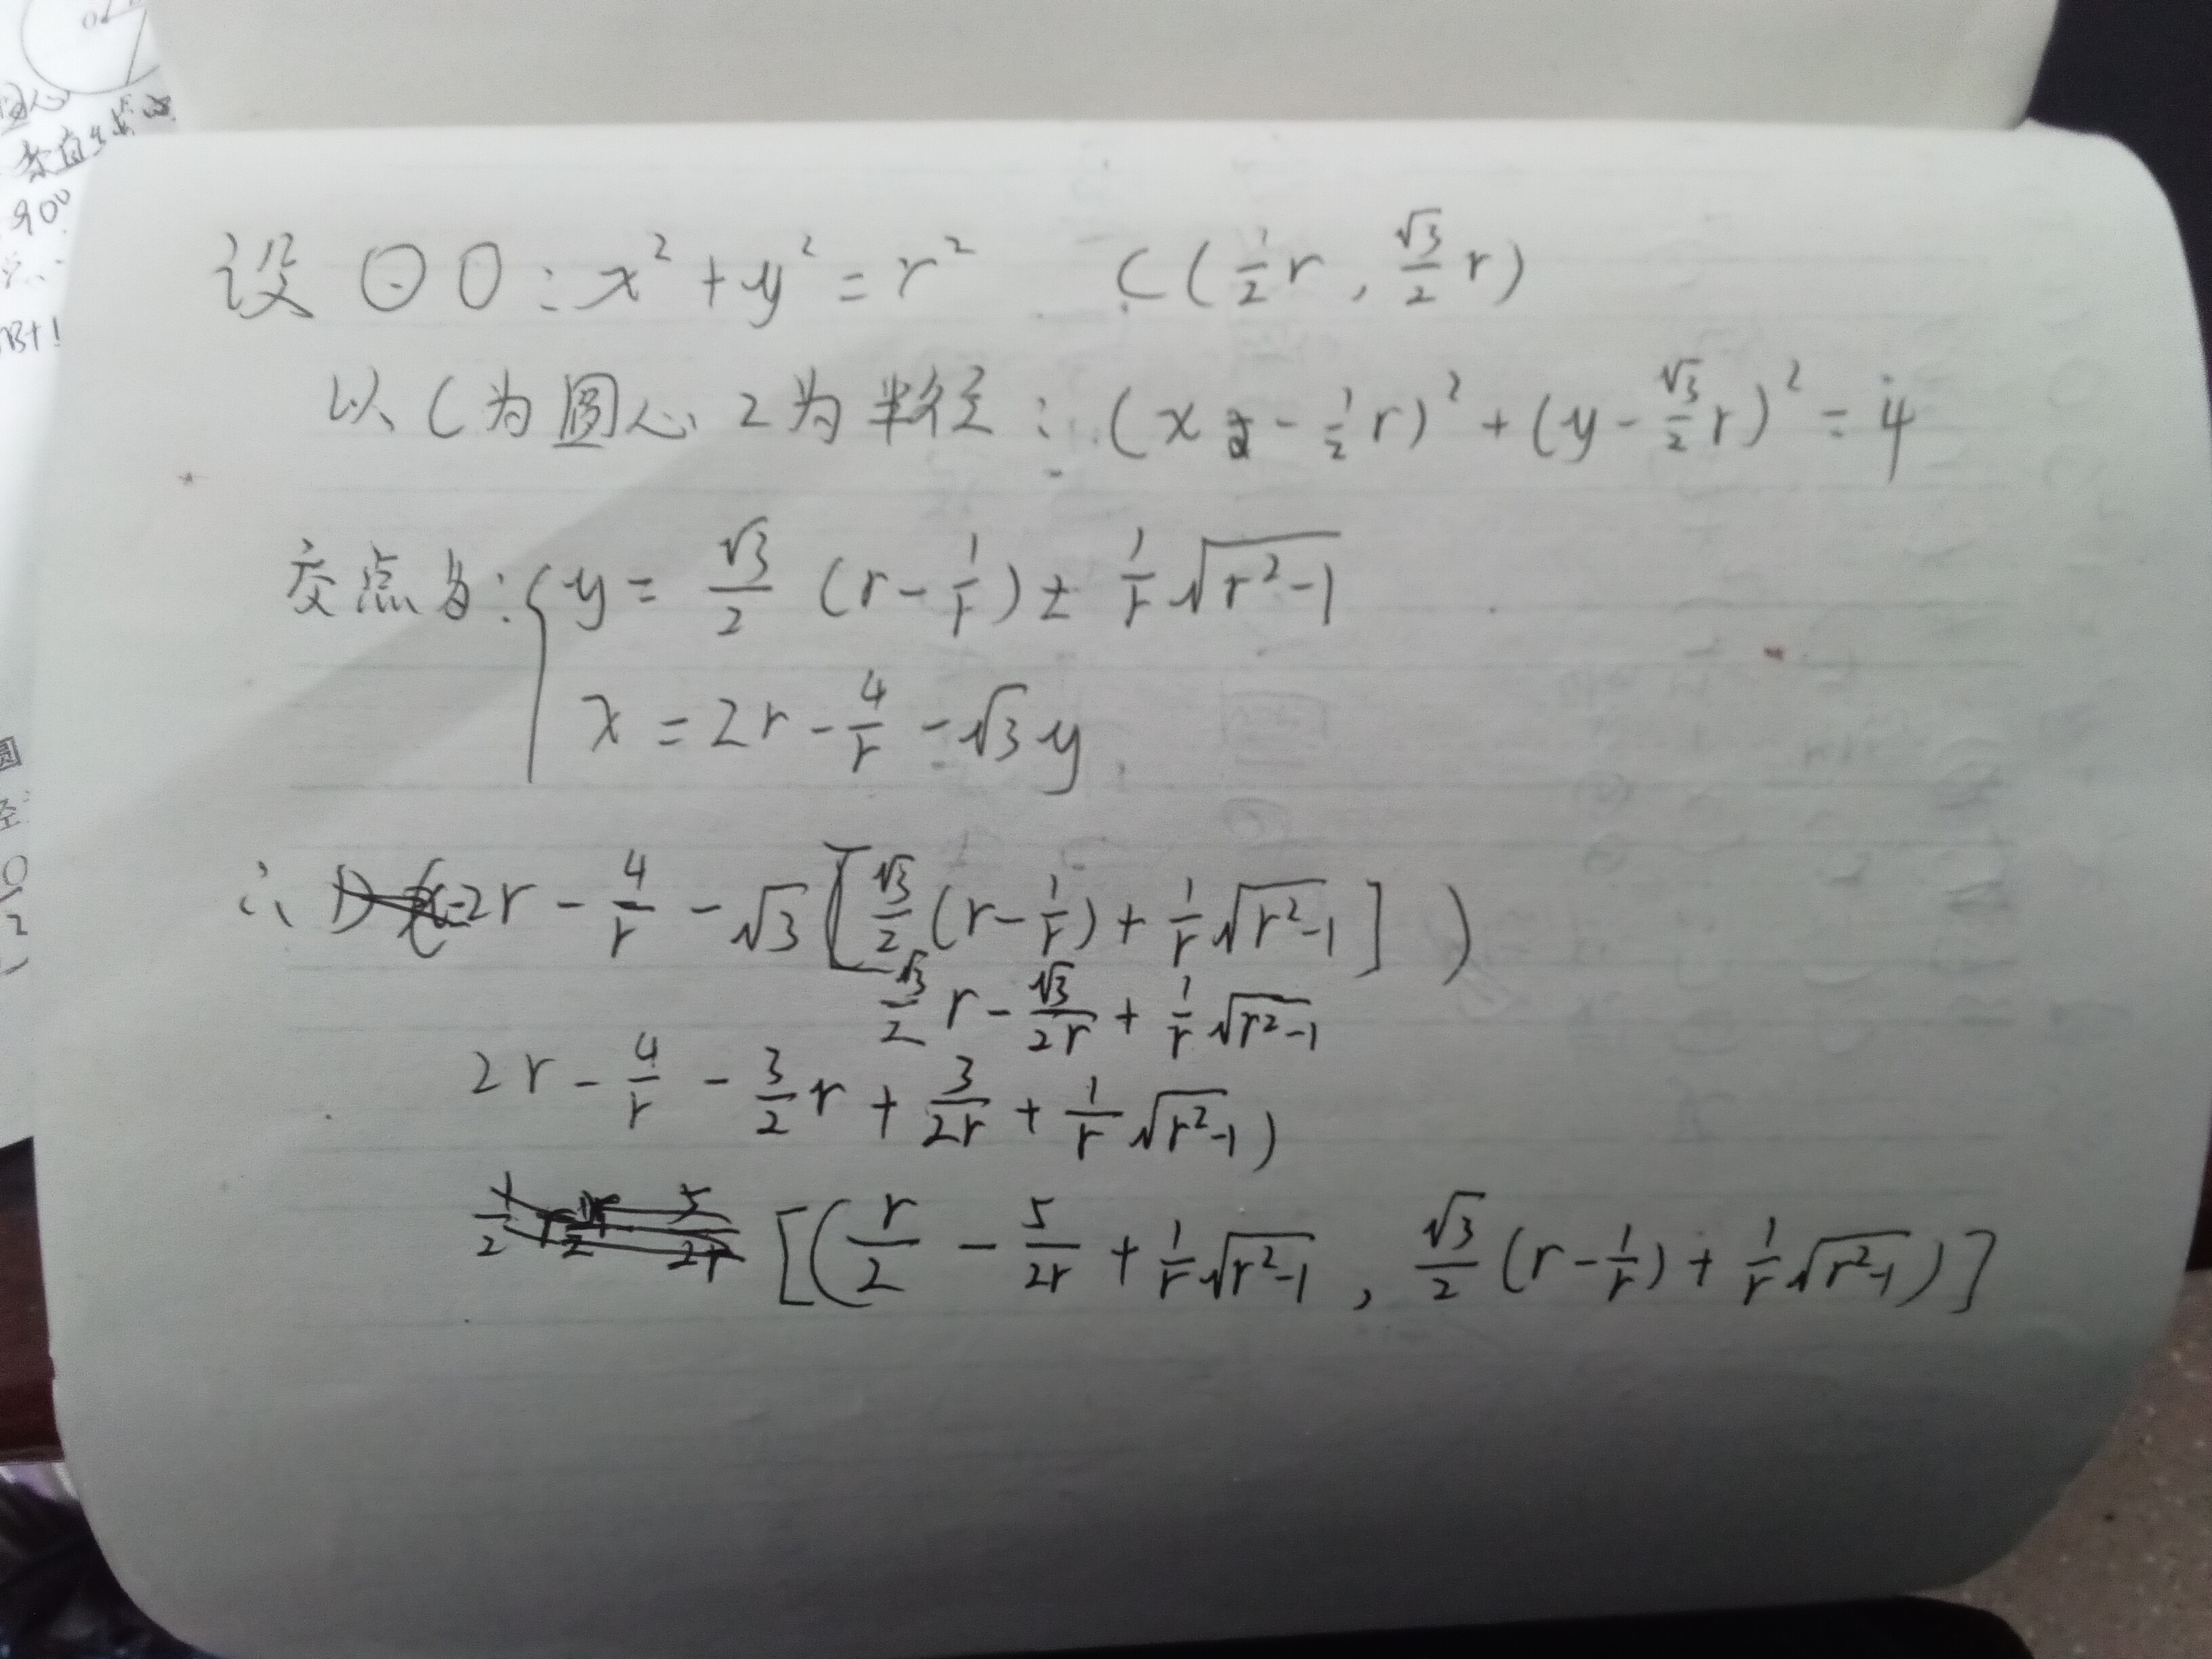 圆心
90°
设 ⊙O：x² + y² = r²　C(½r, √3/2 r)
以C为圆心 2为半径：(x - ½r)² + (y - √3/2 r)² = 4
交点为：{ y = √3/2 (r - 1/r) ± 1/r √(r²-1)
x = 2r - 4/r - √3y
∴ D 2r - 4/r - √3[√3/2 (r - 1/r) + 1/r √(r²-1)] )
√3/2 r - √3/2r + 1/r √(r²-1)
2r - 4/r - 3/2 r + 3/2r + 1/r √(r²-1) )
[(r/2 - 5/2r + 1/r √(r²-1) , √3/2 (r - 1/r) + 1/r √(r²-1))]